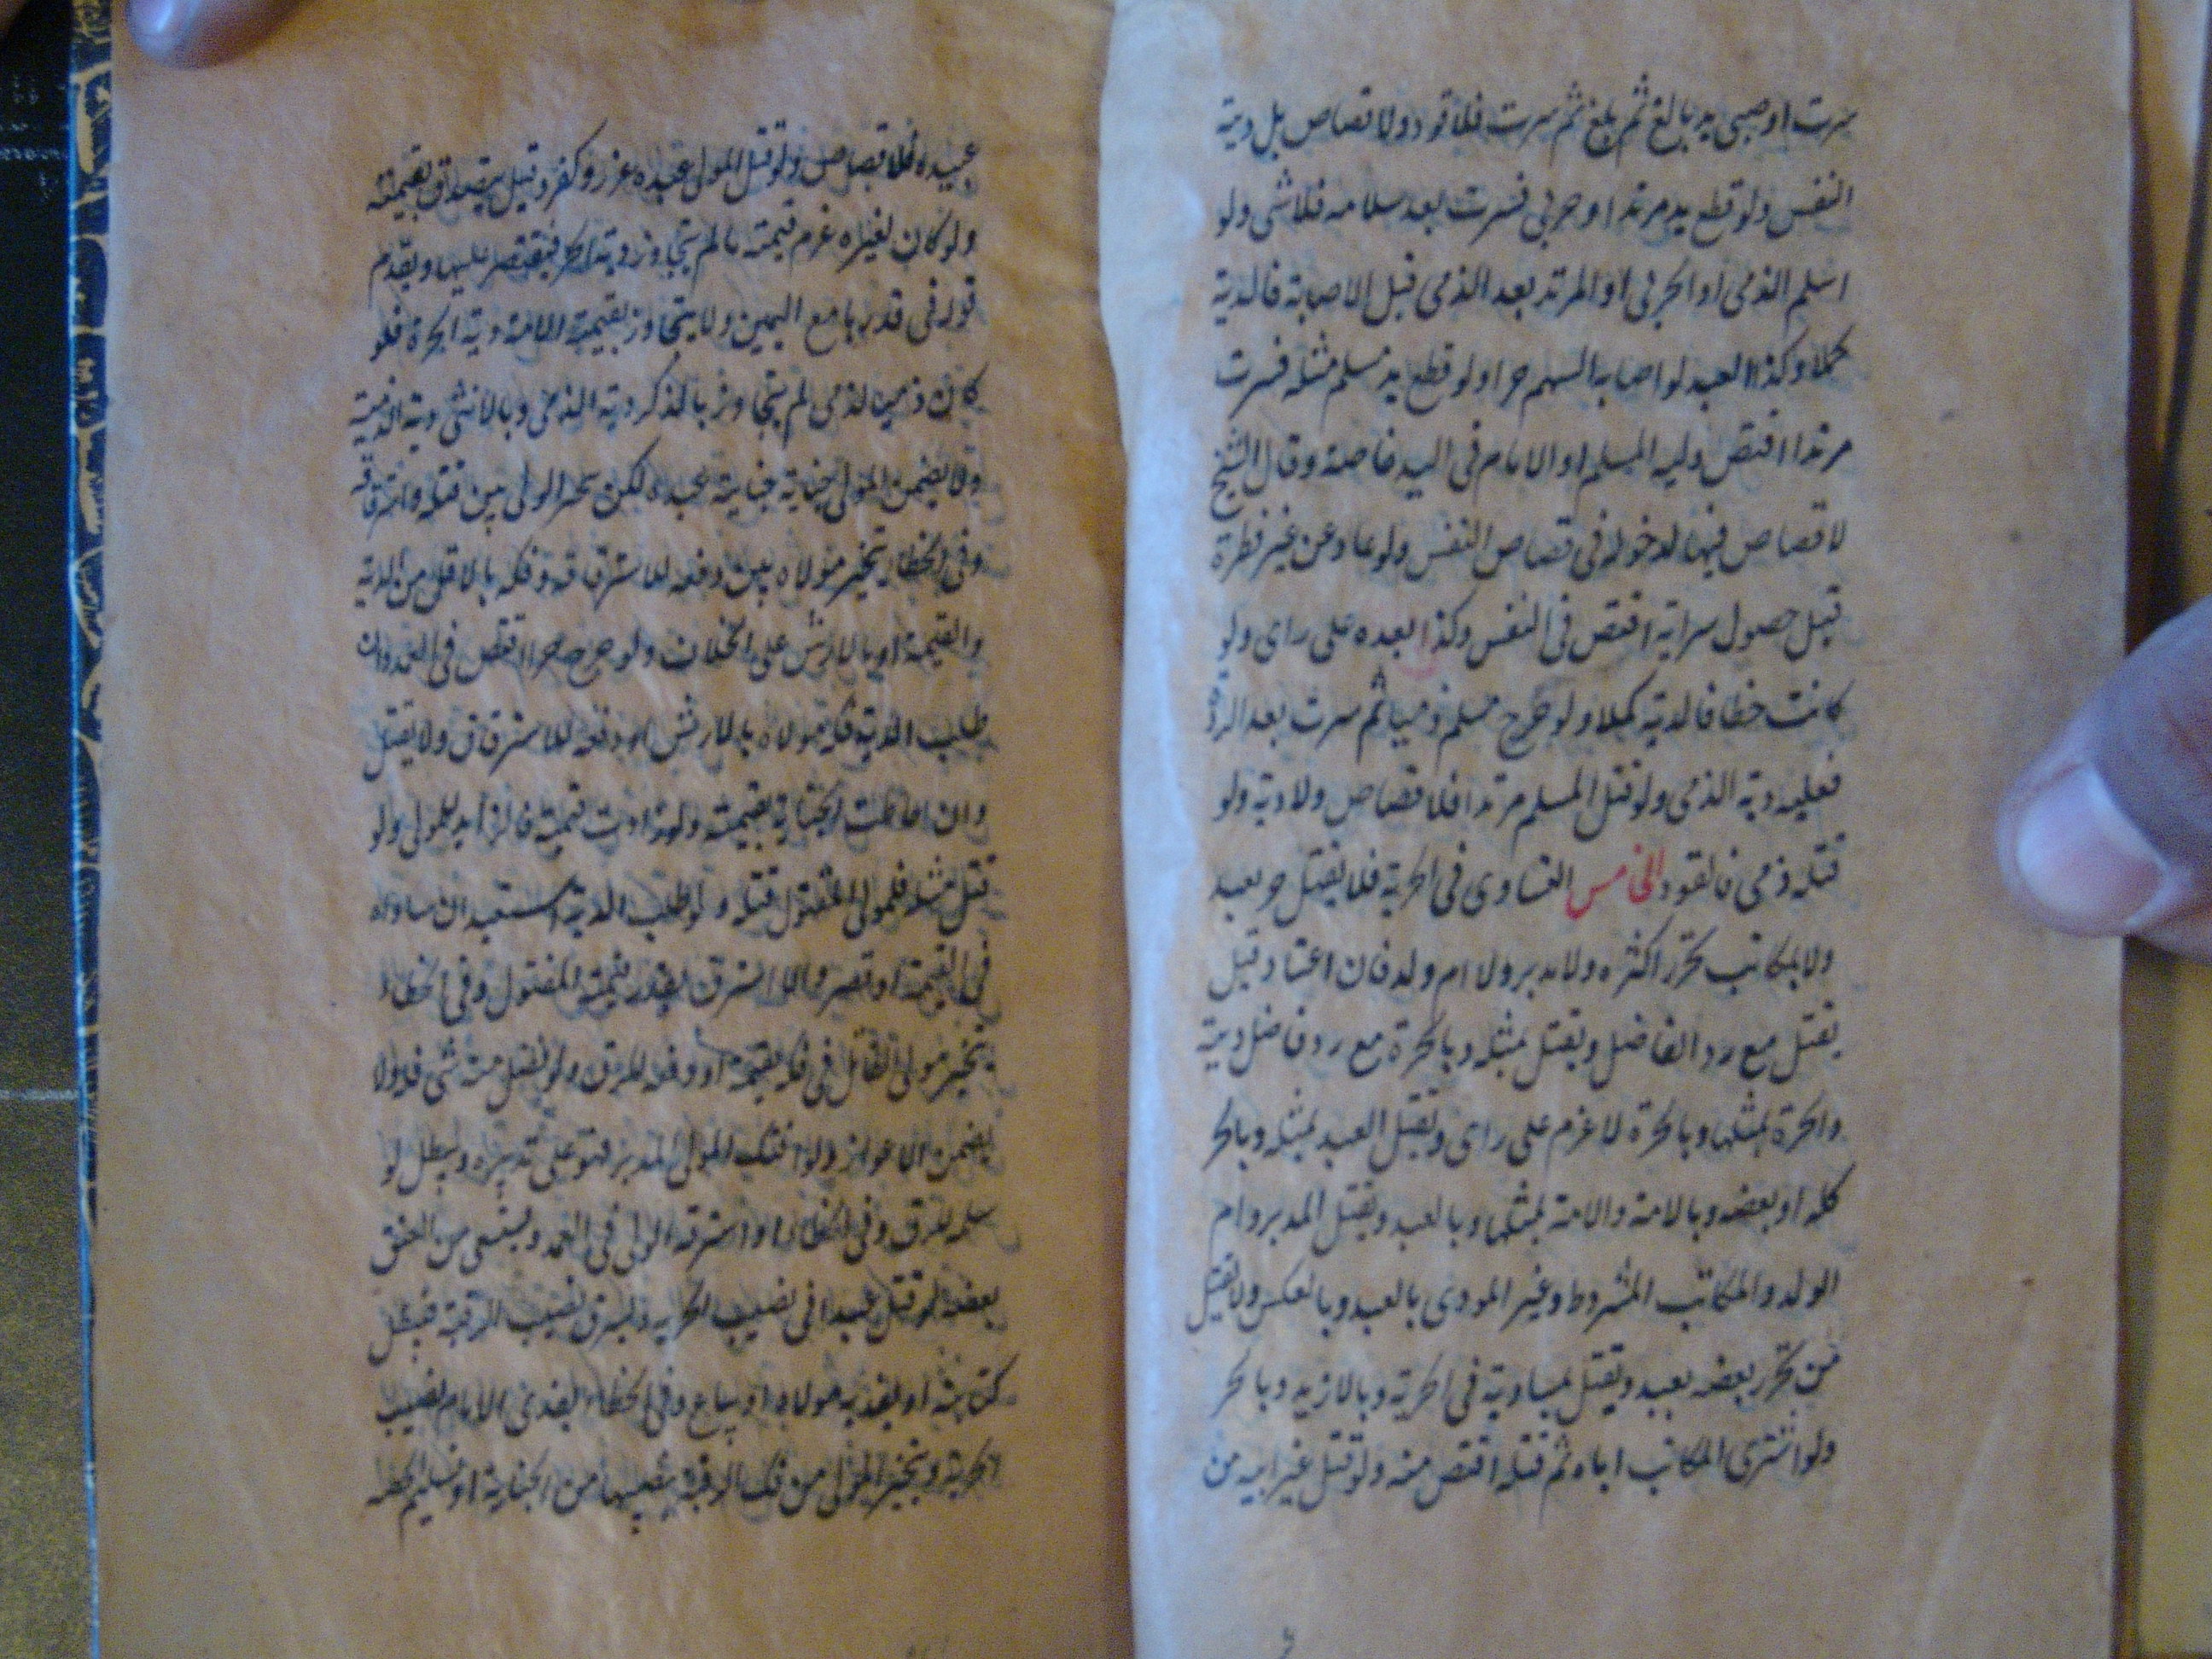 سرت او صبی ید بالغ ثم بلغ ثم سرت فلا قود ولا قصاص بل دیة
النفس ولو قطع ید مرتد او حربی فسرت بعد سلامه فلا شی ولو
اسلم الذمی او الحربی او المرتد بعد الذمی قبل الاصابة فالدیة
کملا وکذا العبد لو اصابه السهم حرا ولو قطع ید مسلم مثله فسرت
مرتدا اقتص ولیه المسلم او الامام فی الید خاصة وقال الشیخ
لا قصاص فیها لدخوله فی قصاص النفس ولو عاد عن غیر فطرة
قبل حصول سرایة اقتص فی النفس وکذا بعده علی رای ولو
کانت خطا فالدیة کملا ولو جرح مسلم ذمیا ثم سرت بعد الردة
فعلیه دیة الذمی ولو قتل المسلم مرتدا فلا قصاص ولا دیة ولو
قتله ذمی فالقود الخامس التساوی فی الحریة فلا یقتل حر بعبد
ولا بمکاتب تحرر اکثره ولا مدبر ولا ام ولد فان اعتاد قتل
یقتل مع رد الفاضل ویقتل بمثله وبالحرة مع رد فاضل دیته
والحرة بمثلها وبالحر ولا غرم علی رای ویقتل العبد بمثله وبالحر
کله او بعضه وبالامة والامة بمثلها وبالعبد ویقتل المدبر وام
الولد والمکاتب المشروط وغیر المودی بالعبد وبالعکس ولا یقتل
من تحرر بعضه بعبد ویقتل بمساویه فی الحریة وبالازید وبالحر
ولو اشتری المکاتب اباه ثم قتله اقتص منه ولو قتل غیر ابیه من
عبیده فلا قصاص ولو قتل المولی عبده عزر وکفر وقیل یتصدق بقیمته
ولو کان لغیره غرم قیمته ما لم یتجاوز دیة الحر فیقتصر علیها ویقدم
قوله فی قدرها مع الیمین ولا یتجاوز بقیمة الامة دیة الحرة فلو
کان ذمیا لذمی لم یتجاوز بالذکر دیة الذمی وبالانثی دیة الذمیة
ولا یضمن المولی جنایة عبده لکن یتخیر الولی بین قتله واسترقاقه
وفی الخطا یتخیر مولاه بین دفعه للاسترقاق وفکه بالاقل من الدیة
والقیمة او بالارش علی الخلاف ولو جرح حرا اقتص فی العمد وان
طلب الدیة فکه مولاه بالارش او دفعه للاسترقاق ولا یقتل
وان احاطت الجنایة بقیمته ولو زادت قیمته فالزاید للمولی ولو
قتل مثله فلمولی المقتول قتله ولو طلب الدیة استعبد ان ساواه
فی القیمة او قصر والا استرق بقدر قیمة المقتول وفی الخطا
یتخیر مولی القاتل فی فکه بقیمته او دفعه للرق ولو فضل منه شی فله ولا
یضمن الاعواز ولو افتک المولی المدبر فهو علی تدبیره ویبطل لو
سلمه للرق وفی الخطا او استرقه الولی فی العمد ویستسعی من انعتق
بعضه لو قتل عبدا فی نصیب الحریة ویسترق نصیب الرقیة فتبطل
کتابته او یفدیه مولاه او یباع وفی الخطاء یفدی الامام نصیب
الحریة ویتخیر المولی من فک الرقبة بنصیبها من الجنایة او تسلیم حصة